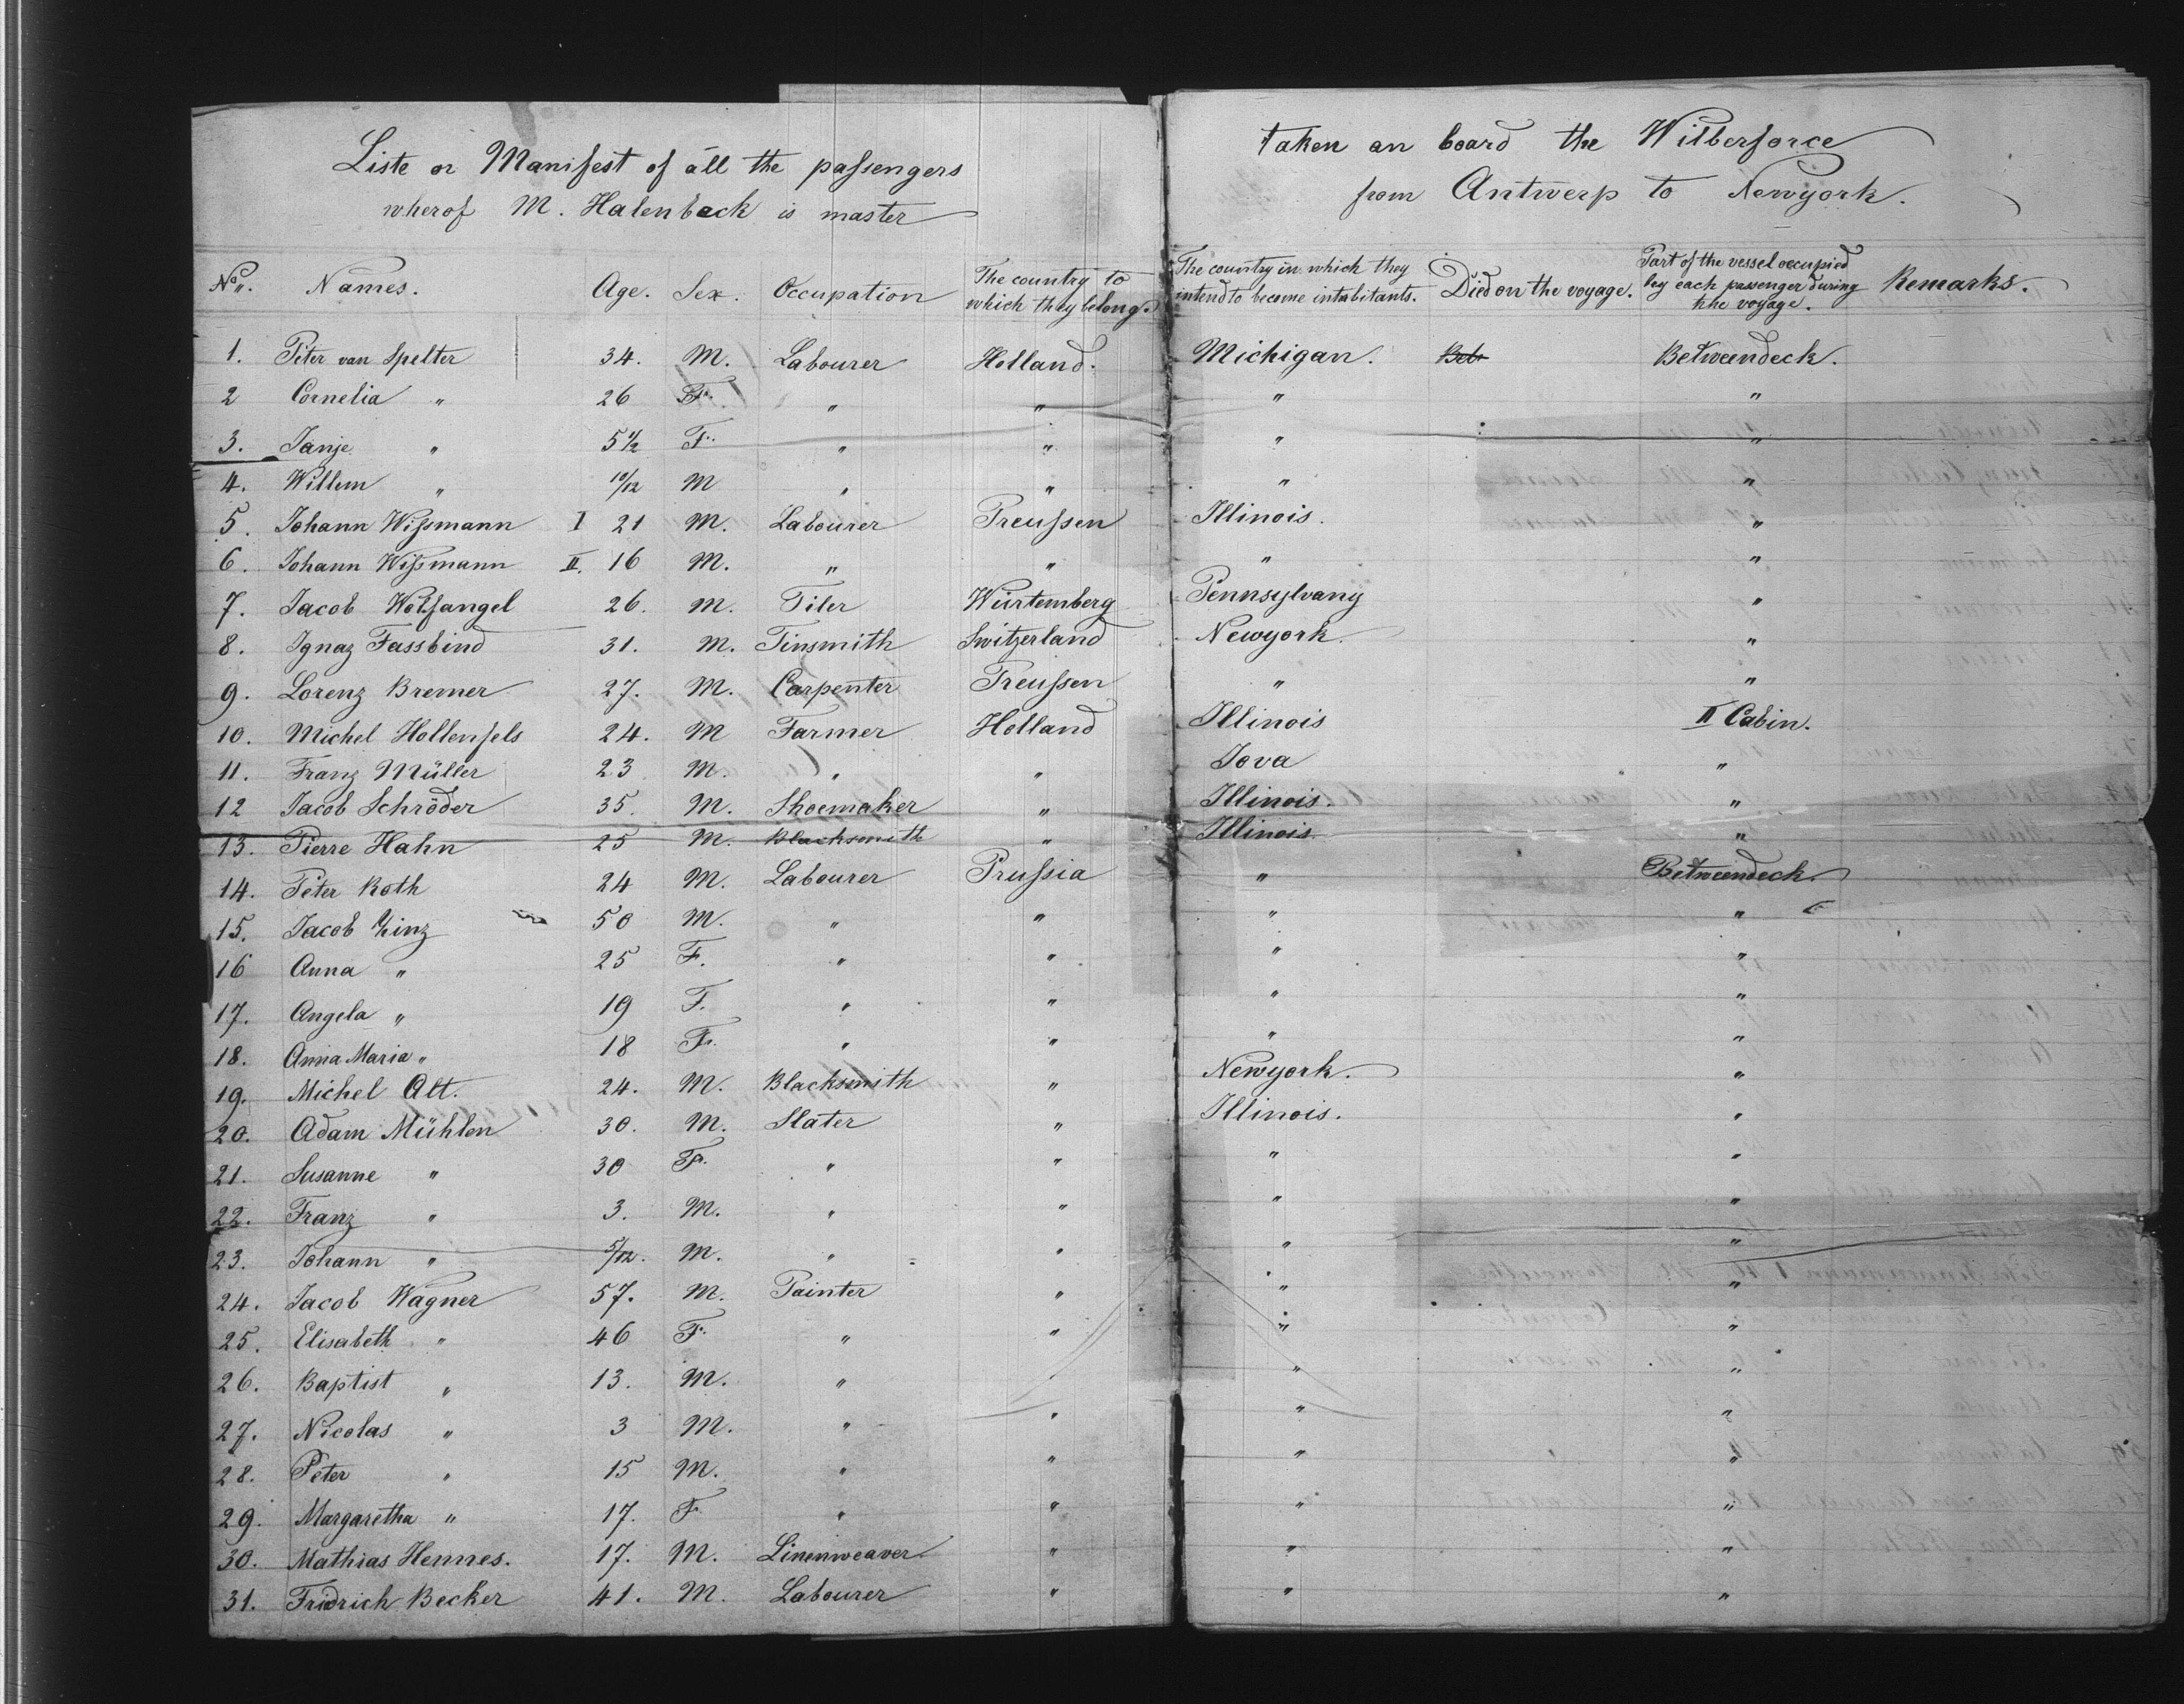 Liste or Manifest of all the passengers taken an board the Wilberforce
wherof M. Halenbeck is master from Antwerp to Newyork.
No. Names. Age. Sex. Occupation The country to which they belong. The country in which they intend to become intabitants. Died on the voyage. Part of the vessel occupied by each passenger during the voyage. Remarks.
1. Peter van Spelter 34. M. Labourer Holland. Michigan. Betweendeck.
2 Cornelia " 26 F. " " " "
3. Janje " 5 1/2 F. " " " "
4. Willem " 10/12 M " " " "
5. Johann Wißmann I 21 M. Labourer Preussen Illinois. "
6. Johann Wißmann II. 16 M. " " " "
7. Jacob Wolfangel 26. M. Tiler Würtemberg Pennsylvany "
8. Ignaz Fassbind 31. M. Tinsmith Switzerland Newyork. "
9. Lorenz Bremer 27. M. Carpenter Preussen " "
10. Michel Hollenfels 24. M Farmer Holland Illinois II Cabin.
11. Franz Müller 23 M. " " Iova "
12 Jacob Schröder 35. M. Shoemaker " Illinois. "
13. Pierre Hahn 25 M. Blacksmith " Illinois. "
14. Peter Roth 24 M. Labourer Prussia " Betweendeck.
15. Jacob Zinz 50 M. " " " "
16 Anna " 25 F. " " " "
17. Angela " 19 F. " " " "
18. Anna Maria " 18 F. " " " "
19. Michel Alt. 24. M. Blacksmith " Newyork. "
20. Adam Mühlen 30. M. Slater " Illinois. "
21. Susanne " 30 F. " " " "
22. Franz " 3. M. " " " "
23. Johann " 5/12. M. " " " "
24. Jacob Wagner 57. M. Painter " " "
25. Elisabeth " 46 F. " " " "
26. Baptist " 13. M. " " "
27. Nicolas " 3 M. " " " "
28. Peter " 15 M. " " " "
29. Margaretha " 17. F " " " "
30. Mathias Hennes. 17. M. Linenweaver " " "
31. Fridrich Becker 41. M. Labourer " " "